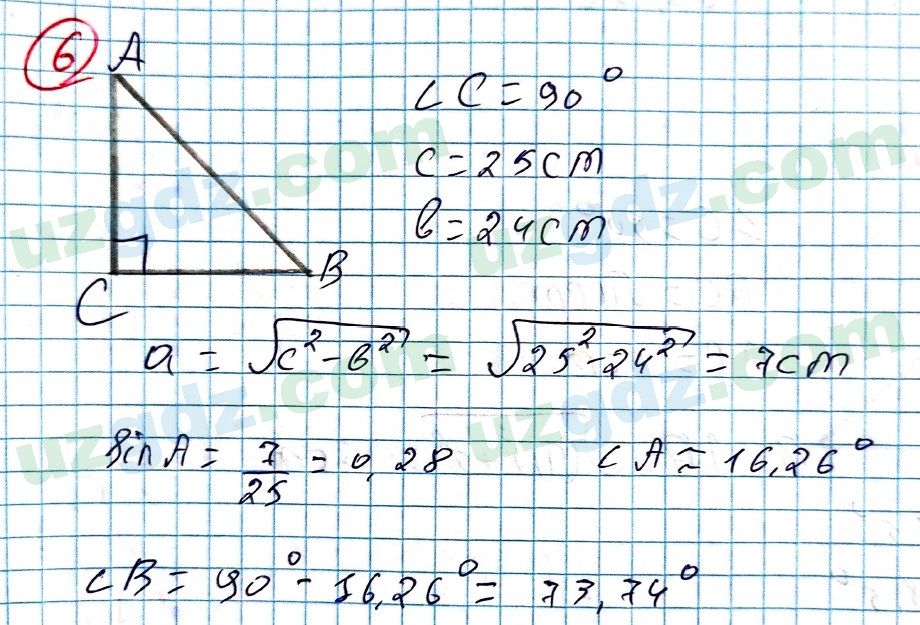 6
A
∠C = 90°
c = 25cm
b = 24cm
B
C
a = √(c² - b²) = √(25² - 24²) = 7cm
sin A = 7/25 = 0,28 ∠A ≈ 16,26°
∠B = 90° - 16,26° = 73,74°
uzgdz.com
uzgdz.com
uzgdz.com
uzgdz.com